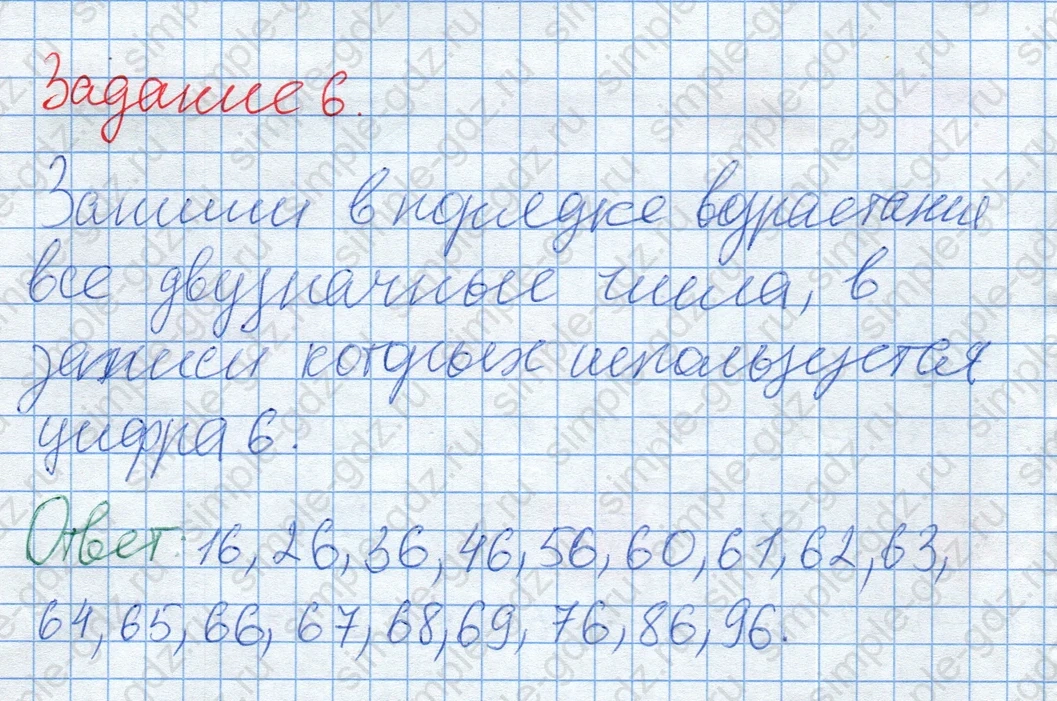 Задание 6.
Запиши в порядке возрастания
все двузначные числа, в
записи которых используется
цифра 6.
Ответ: 16, 26, 36, 46, 56, 60, 61, 62, 63,
64, 65, 66, 67, 68, 69, 76, 86, 96.
simple-gdz.ru